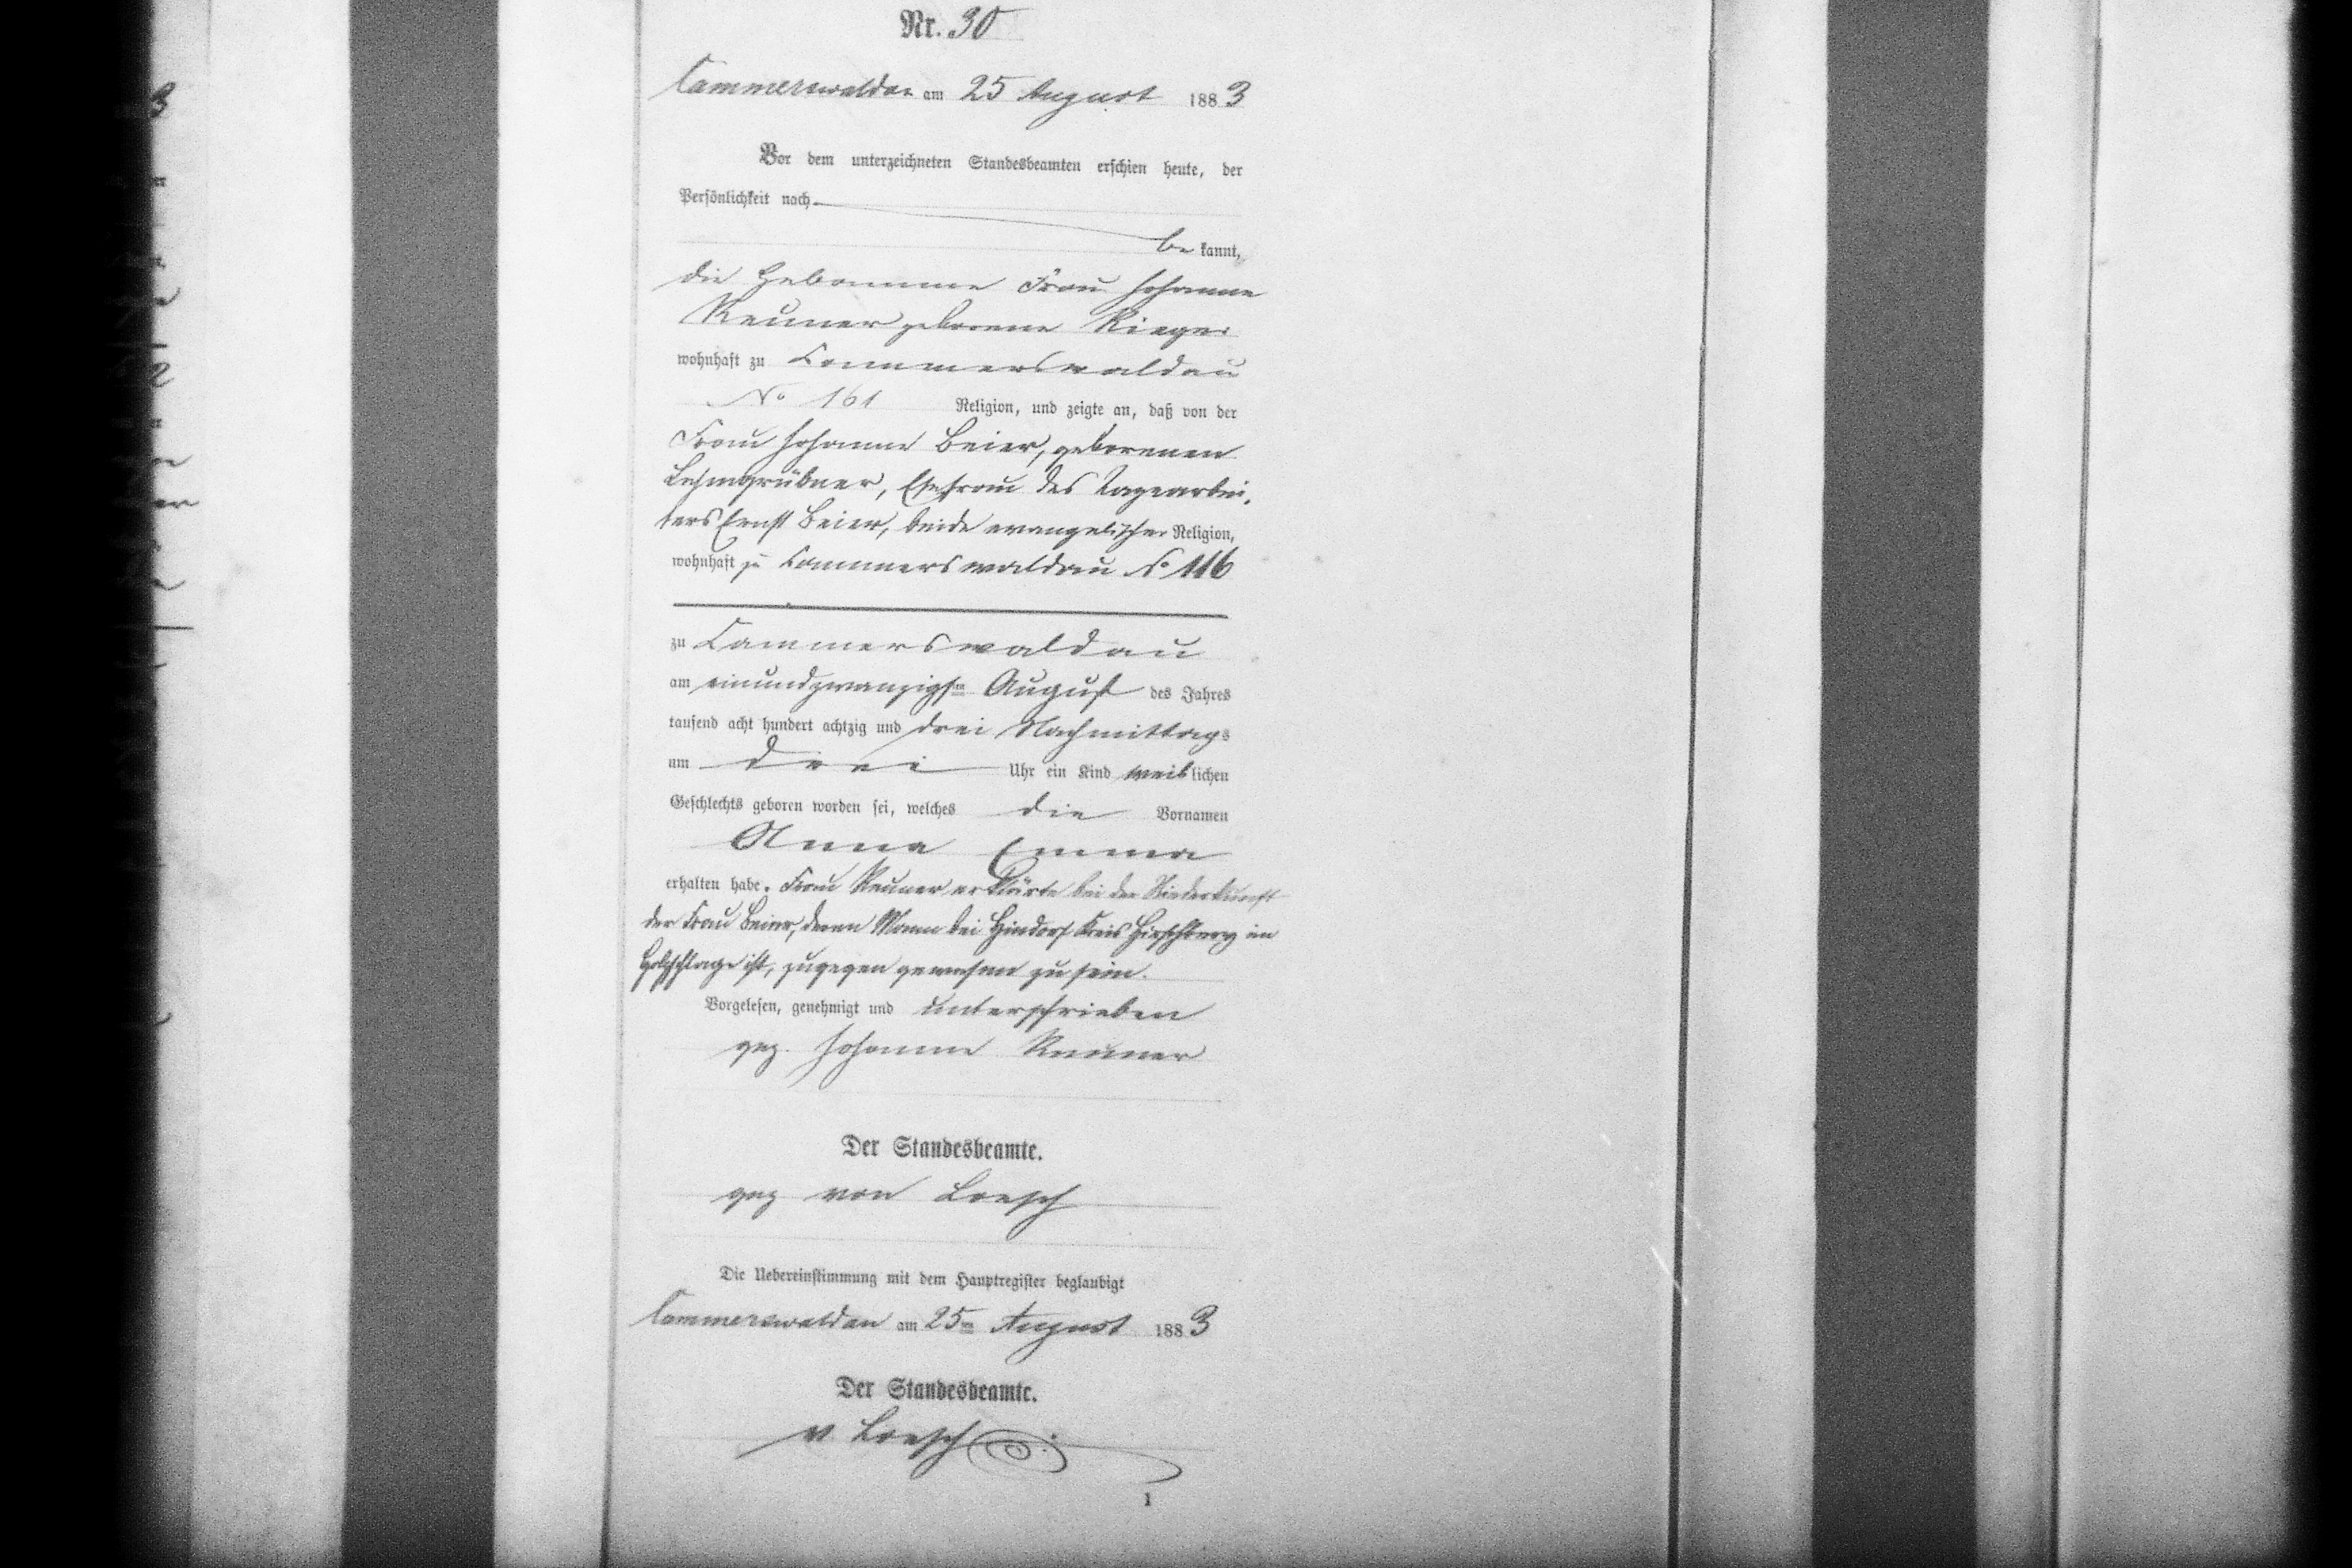 Nr. 30
Cammerswaldau am 25 August 1883
Vor dem unterzeichneten Standesbeamten erschien heute, der
Persönlichkeit nach
be kannt,
die Hebamme Frau Johanne
Reuner geborene Rieger
wohnhaft zu Cammerswaldau
No 161 Religion, und zeigte an, daß von der
Frau Johanne Beier, geborenen
Lehmgrübner, Ehefrau des Tagearbei-
ters Ernst Beier, beide evangelischer Religion,
wohnhaft zu Cammerswaldau No 116
zu Cammerswaldau
am einundzwanzigsten August des Jahres
tausend acht hundert achtzig und drei Nachmittags
um drei Uhr ein Kind weiblichen
Geschlechts geboren worden sei, welches die Vornamen
Anna Emma
erhalten habe. Frau Reuner erklärte bei der Niederkunft
der Frau Beier, deren Mann bei Hindorf Kreis Hirschberg im
Holzschlage ist, zugegen gewesen zu sein.
Vorgelesen, genehmigt und unterschrieben
gez. Johanne Reuner
Der Standesbeamte.
gez von Loesch
Die Uebereinstimmung mit dem Hauptregister beglaubigt
Cammerswaldau am 25ten August 1883
Der Standesbeamte.
v Loesch
1